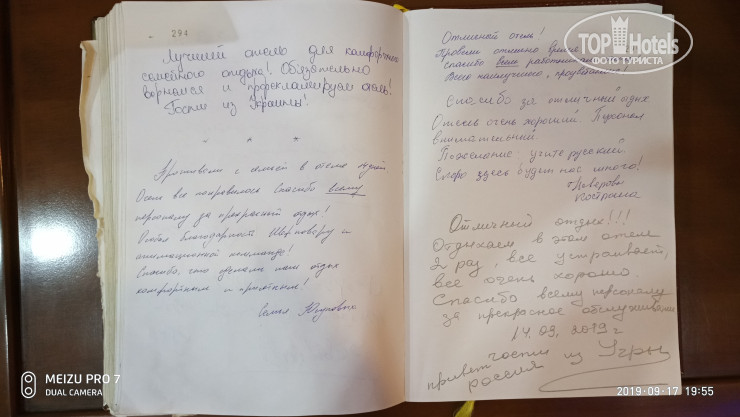 294
Лучший отель для комфортного
семейного отдыха! Обязательно
вернемся и прорекламируем отель!
Гости из Украины!
* * *
с семьей в отеле
все понравилось Спасибо всему
персоналу за прекрасный отдых!
благодарность и
анимационной команде!
Спасибо, что сделали наш отдых
комфортным и приятным!
Семья
Отличный отель!
Провели отлично время
спасибо всем
Всего наилучшего, процветания!
Спасибо за отличный отдых
Отель очень хороший. Персонал
внимательный.
Пожелание: учите русский.
Скоро здесь будет нас много!
Кострома
Отличный отдых!!!
Отдыхаем в этом отеле
2 раз, все устраивает,
все очень хорошо.
Спасибо всему персоналу
за прекрасное обслуживание
14.09.2019 г
привет гости из Югры
россия
TOP Hotels
ФОТО ТУРИСТА
MEIZU PRO 7
DUAL CAMERA
2019-09-17 19:55